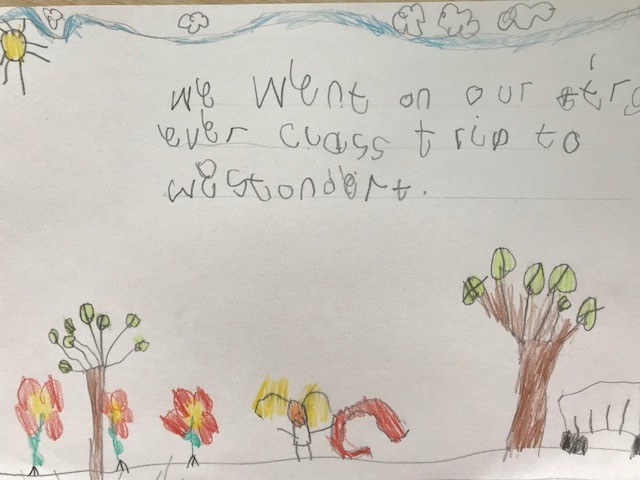 we went on our
ever class trip to
westondert.